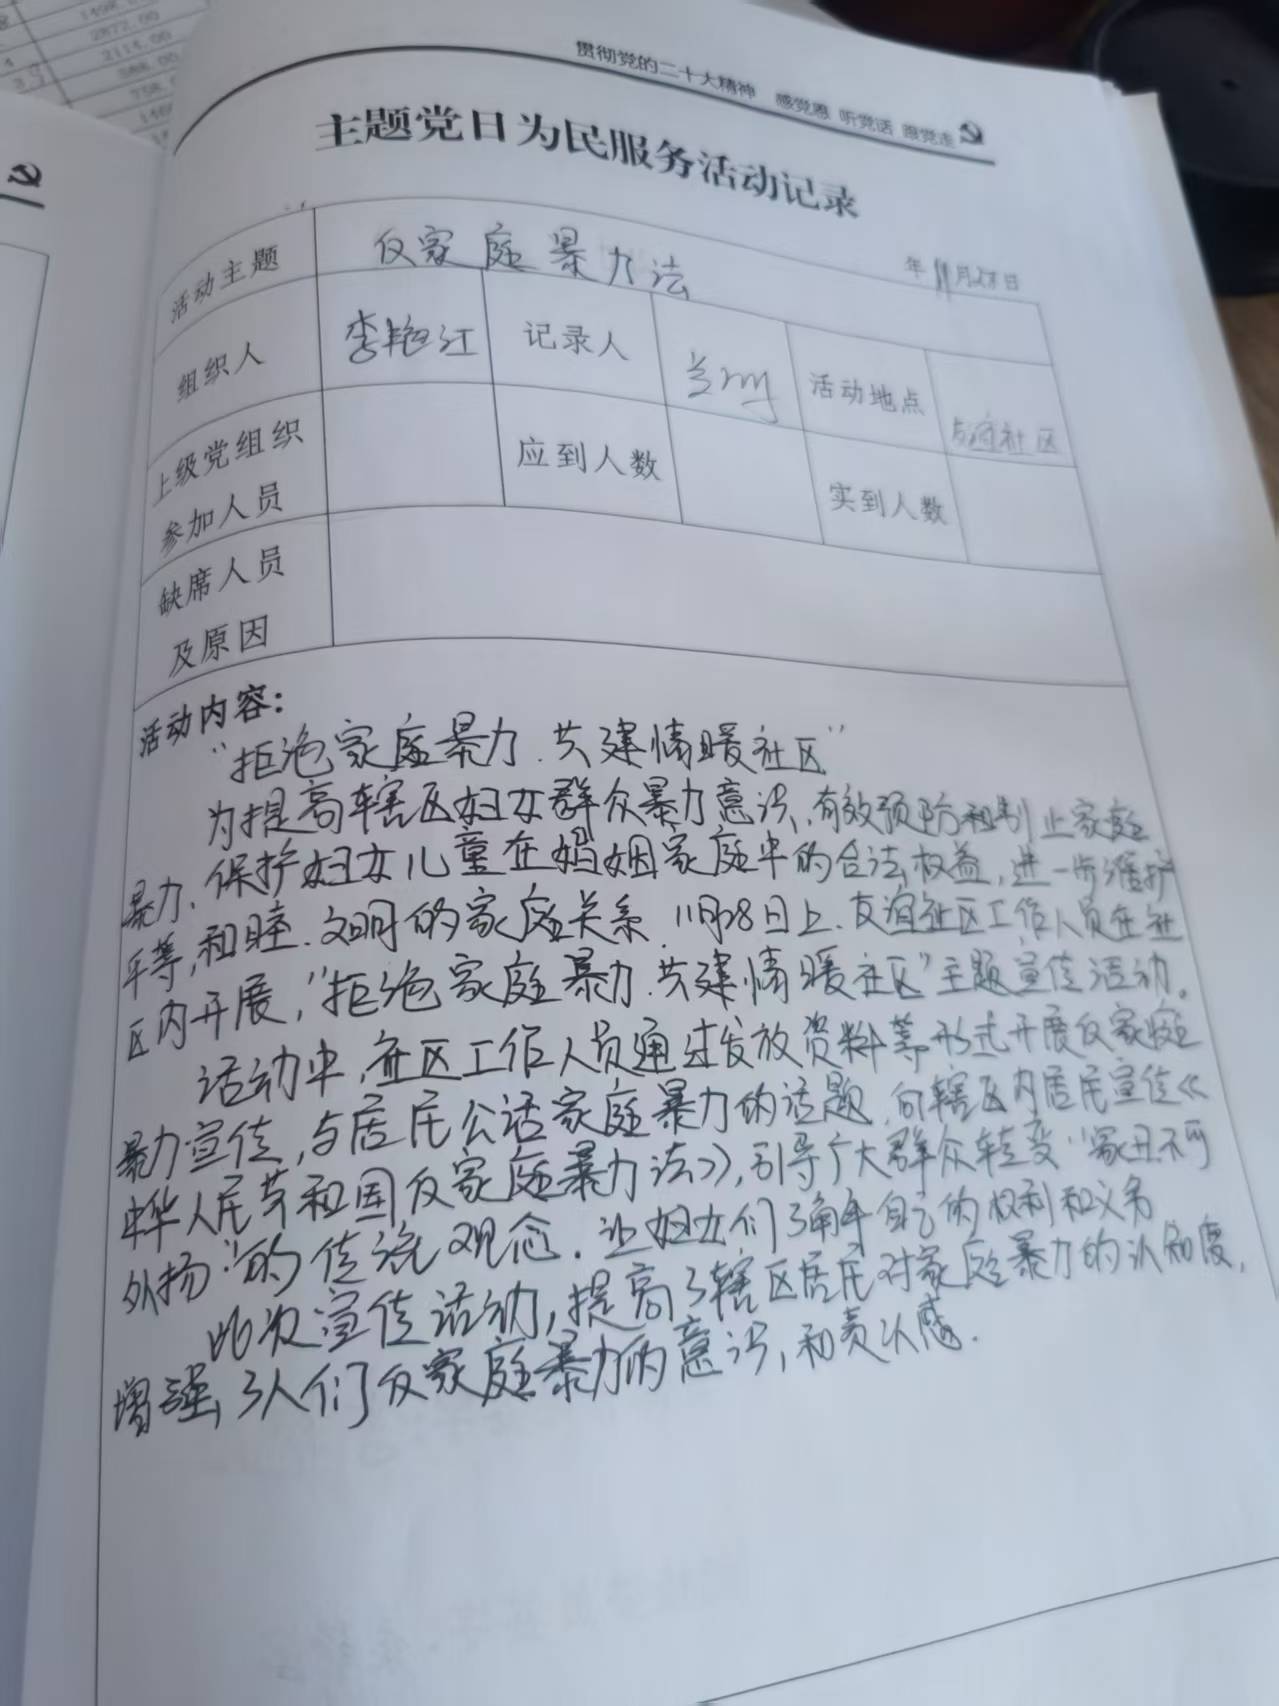 贯彻党的二十大精神 感党恩 听党话 跟党走
主题党日为民服务活动记录
年11月28日
活动主题 反家庭暴力法
组织人 李艳江 记录人 活动地点 友谊社区
上级党组织
参加人员
应到人数 实到人数
缺席人员
及原因
活动内容：
“拒绝家庭暴力.共建情暖社区”
为提高辖区妇女群众暴力意识，有效预防和制止家庭
暴力、保护妇女儿童在婚姻家庭中的合法权益，进一步维护
平等，和睦.文明的家庭关系.11月28日上.友谊社区工作人员在社
区内开展，“拒绝家庭暴力.共建情暖社区”主题宣传活动。
活动中，社区工作人员通过发放资料等形式开展反家庭
暴力宣传，与居民公话家庭暴力的话题，向辖区内居民宣传《
中华人民共和国反家庭暴力法》，引导广大群众转变“家丑不可
外扬”的传统观念.让妇女们了解自己的权利和义务
此次宣传活动，提高了辖区居民对家庭暴力的认知度，
增强了人们反家庭暴力的意识，和责认感.